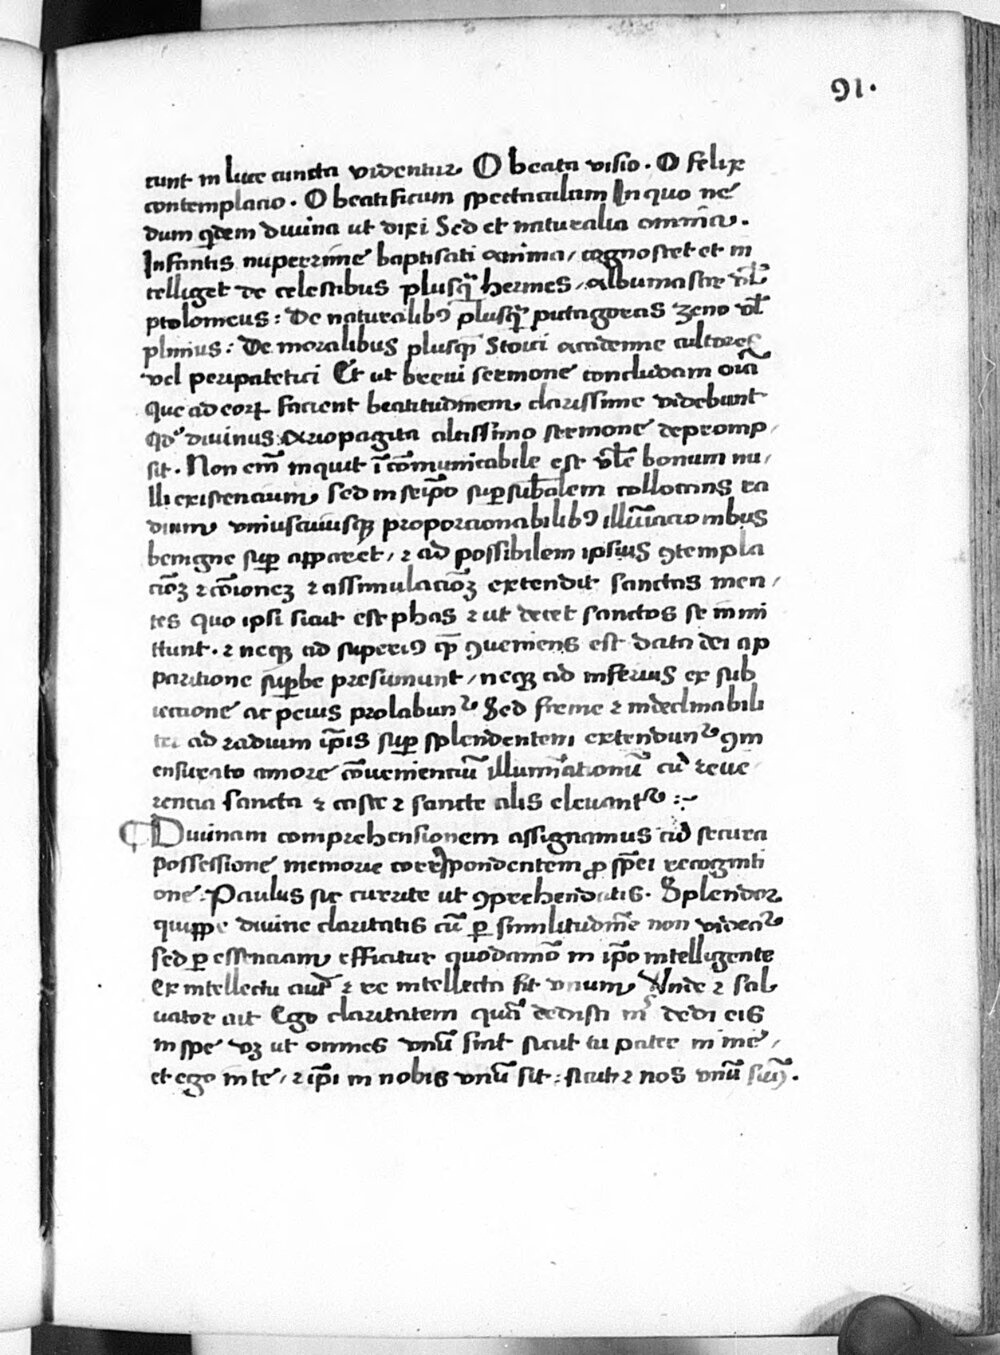 91.
cunt in luce cuncta videntur O beata visio. O felix
contemplacio. O beatificum spectaculum In quo ne
dum qdem divina ut dixi Sed et naturalia omnia.
Infantis nuperrime baptisati anima, cognoscet et in
telliget de celestibus plusq̃ hermes, albumasar vl̃
ptolomeus: De naturalib9 plusq̃ putagoras zeno vl̃
plinius: De moralibus plusq̃ Stoici academie cultores
vel peripatetici Et ut brevi sermone concludam oĩa
que ad eorꝝ facient beatitudinem clarissime videbunt
qd' divinus Ariopagita altissimo sermone depromp,
sit. Non em̃ inquit ĩcõmunicabile est vl̃e bonum nu,
lli existencium Sed in seip̃o supersub̃alem collocans ra
dium uniuscuiusqꝫ proporcionabilib9 illũĩacionibus
benigne suꝑ apparet, ⁊ ad possibilem ipsius 9templa
ciõꝫ ⁊ cõioneꝫ ⁊ assimulaciõꝫ extendit sanctas men,
tes quo ipsi sicut est phas ⁊ ut decet sanctos se inmi
ttunt. ⁊ neqꝫ ad superi9 qp̃ 9veniens est data dei ap
paritione suꝑbe presumunt, neqꝫ ad inferius ex sub
iectione ac peius prolabunt' Sed firme ⁊ indeclinabili
ter ad radium ip̃is suꝑ splendentem extendunt' 9m
ensurato amore cõveniencium illuminationũ cũ reve
rencia sancta ⁊ caste ⁊ sancte alis elevant' :~
Divinam comprehensionem assignamus cũ secura
possessione memorie correspondentem ꝓ sp̃ei recogniti
one. Paulus sic currite ut 9prehendatis. Splendor
quippe divine claritatis cũ ꝑ similitudinẽ non videat'
sed ꝑ essenciam efficitur quodamõ in ip̃o intelligente
Ex intellectu aut̃ ⁊ re intellecta fit unum Unde ⁊ sal
vator ait Ego claritatem quã dedisti m' dedi eis
in spe vꝫ ut omnes unũ sint sicut tu pater in me,
et ego in te, ⁊ ip̃i in nobis unũ sit: sicut ⁊ nos unũ sum9.